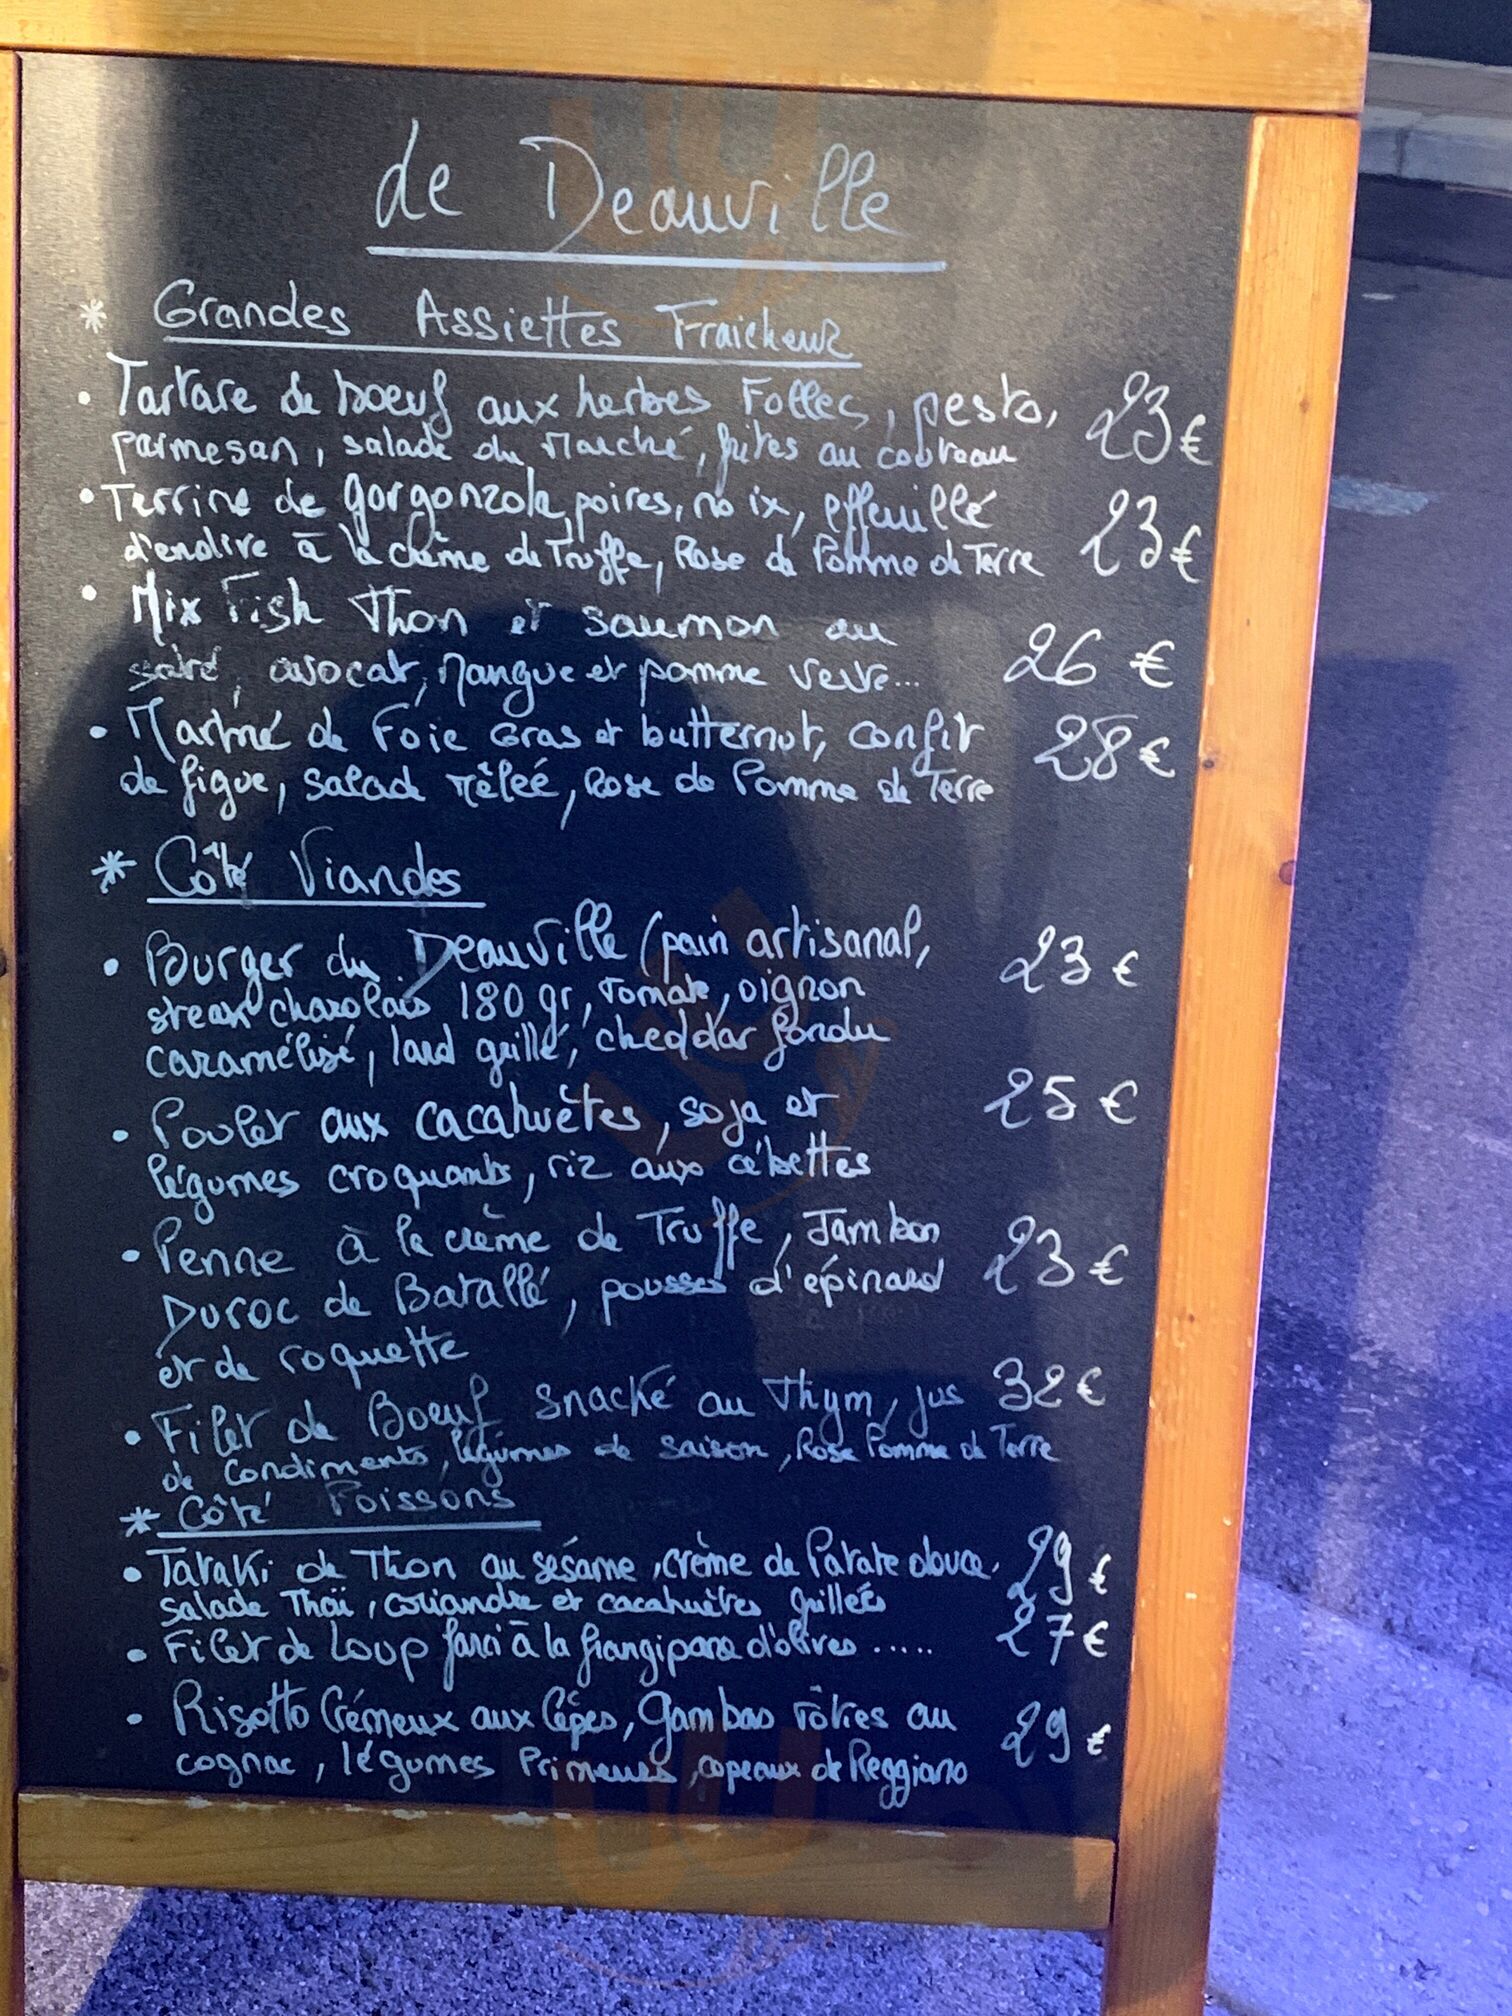 de Deauville
* Grandes Assiettes Fraicheur
• Tartare de boeuf aux herbes Folles, pesto, 23€
parmesan, salade du Marché, frites au couteau
• Terrine de gorgonzola, poires, noix, effeuillé
d'endive à la crème de Truffe, Rose de Pomme de Terre 23€
• Mix Fish Thon et saumon au
avocat, Mangue et pomme verte... 26 €
• Marbré de Foie Gras et butternut, confit 28€
de figue, salad mêleé, Rose de Pomme de Terre
* Côté Viandes
• Burger du Deauville (pain artisanal, 23 €
steak charolais 180 gr, tomate, oignon
caramélisé, lard grillé, cheddar fondu
• Poulet aux cacahuètes, soja et 25 €
légumes croquants, riz aux cébettes
• Penne à la crème de Truffe, Jambon
Duroc de Batallé, pousses d'épinard 23 €
et de roquette
• Filet de Boeuf snacké au Thym, jus 32€
de Condiments, légumes de saison, Rose Pomme de Terre
* Côté Poissons
• Tataki de Thon au sésame, crème de Patate douce, 29€
salade Thaï, coriandre et cacahuètes grillées
• Filet de Loup farci à la frangipane d'olives ..... 27€
• Risotto Crémeux aux Cèpes, gambas rôties au 29€
cognac, légumes Primeurs, copeaux de Reggiano